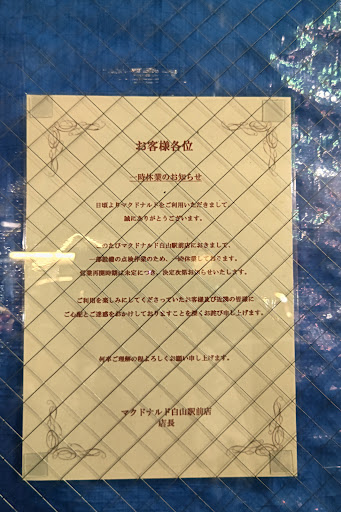 お客様各位
一時休業のお知らせ
日頃よりマクドナルドをご利用いただきまして、
誠にありがとうございます。
このたびマクドナルド白山駅前店におきまして、
一部設備の点検作業のため、一時休業しております。
営業再開時期は未定につき、決定次第お知らせいたします。
ご利用を楽しみにしてくださっていたお客様及び近隣の皆様に
ご心配とご迷惑をおかけしておりますことを深くお詫び申し上げます。
何卒ご理解の程よろしくお願い申し上げます。
マクドナルド白山駅前店
店長